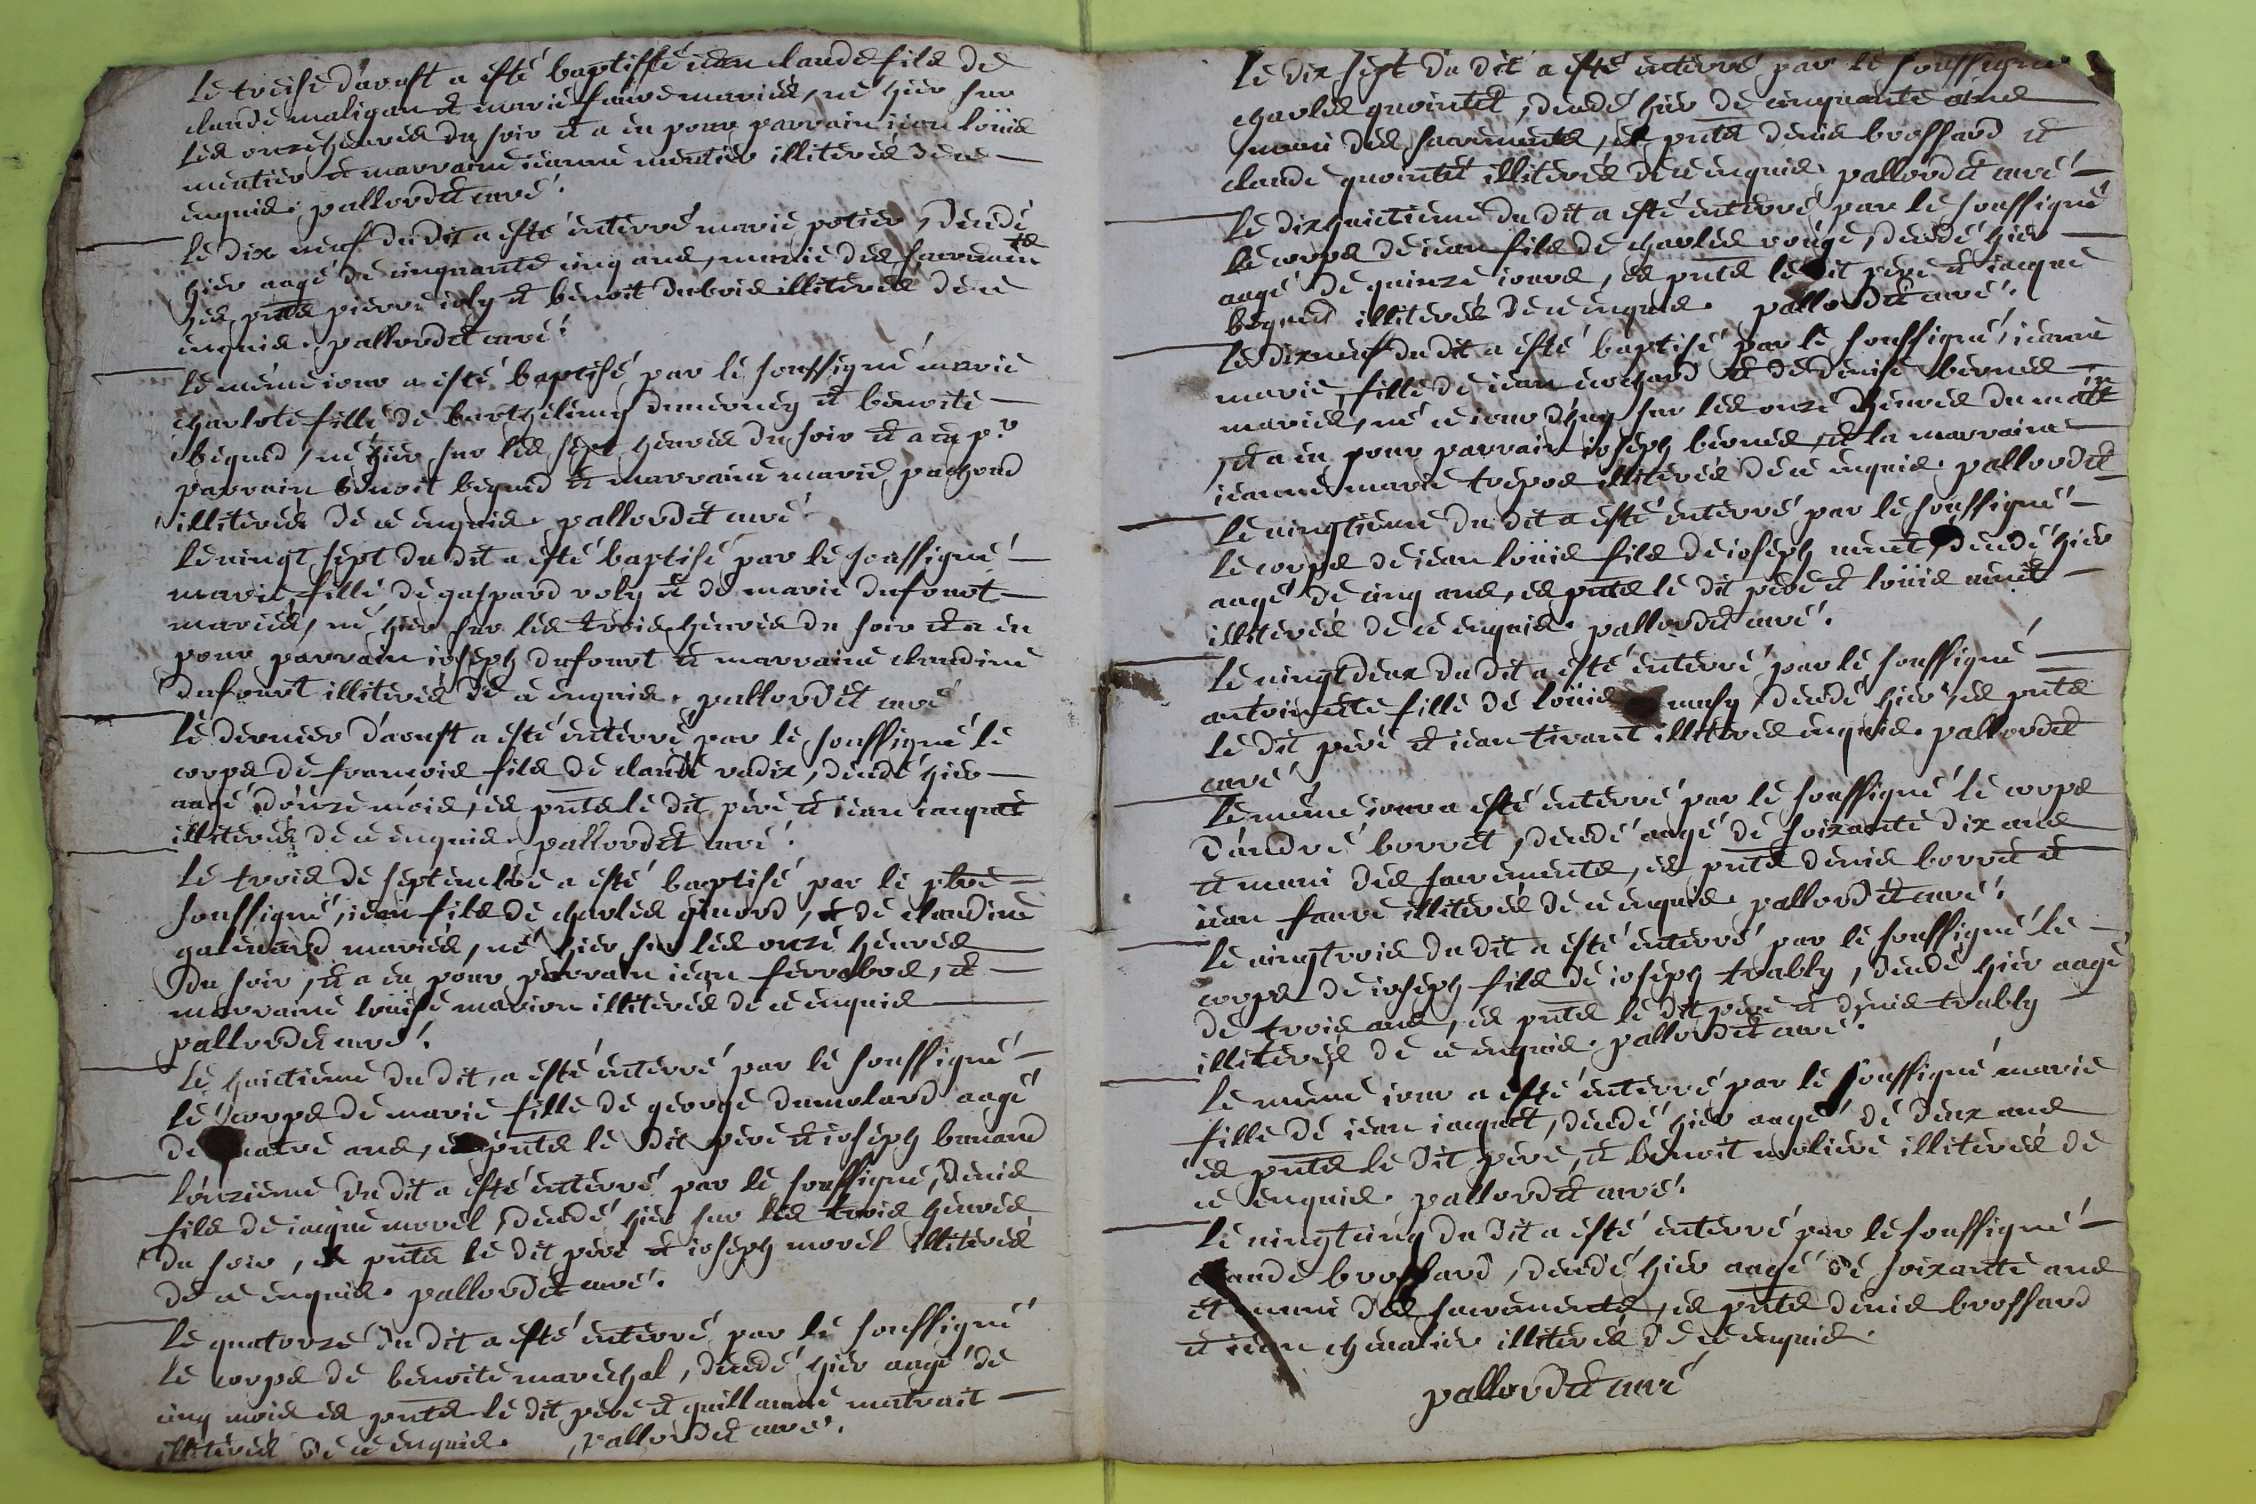 le treise d'aoust a esté baptissé iean claude fils de
claude maligan et marie faure mariés, né hier sur
les onze heures du soir et a eu pour parrain iean loüis
mentier et marraine ieanne mentier illiterés de ce
enquis. pallordet curé.
le dix neuf du dit a esté enterré marie potier, decedé
hier aagé de cinquante cinq ans, munie des sacremen
ts, es pnts pierre ioly et benoit dubois illiterés de ce
enquis. pallordet curé.
le même iour a esté baptisé par le soussigné marie
charlote fille de barthelemy dumerney et benoite
béqued, né hier sur les sept heures du soir et a eu pr
parrain benoit bequed et marraine marie pachoud
illiterés de ce enquis. pallordet curé.
le vingt sept du dit a esté baptisé par le soussigné
marie fille de gaspard roly et de marie dufourt
mariés, né hier sur les trois heures du soir et a eu
pour parrain ioseph dufourt et marraine claudine
dufourt illiterés de ce enquis. pallordet curé
le dernier d'aoust a esté enterré par le soussigné le
corps de francois fils de claude radix, decedé hier
aagé d'onze mois, es pnts le dit pere et iean iaquet
illiterés de ce enquis. pallordet curé.
le trois de septembre a esté baptisé par le pbre
soussigné, iean fils de charles ginord, et de claudine
galinard mariés, né hier sur les onze heures
du soir, et a eu pour parrain iean ferrabos, et
marraine loüise marion illiterés de ce enquis
pallordet curé.
le huictieme du dit, a esté enterré par le soussigné
le corps de marie fille de george dumolard aagé
de quatre ans, es pnts le dit pere et ioseph banand
l'onzieme du dit a esté enterré par le soussigné, denis
fils de iaque morel, decedé hier sur les trois heures
du soir, es pnts le dit pere et ioseph morel illiterés
de ce enquis. pallordet curé.
le quatorze du dit a esté enterré par le soussigné
le corps de benoite marechal, decedé hier aagé de
cinq mois es pnts le dit pere et guillaume mutrait
illiterés de ce enquis. pallordet curé.
le dix sept du dit a esté enterré par le soussigné
charles quointet, decedé hier de cinquante ans
muni des sacrements, es pnts denis brossard et
claude quointet illiterés de ce enquis. pallordet curé
le dixhuictieme du dit a esté enterré par le soussigné
le corps de iean fils de charles rouge, decedé hier
aagé de quinze iours, es pnts le dit pere et iaque
béqued illiterés de ce enquis. pallordet curé.
le dixneuf du dit a esté baptisé par le soussigné, ieanne
marie, fille de iean cochard et de denise bernes
mariés, né ce iourd'huy sur les onze heures du matin
et a eu pour parrain ioseph bernes, et la marraine
ieanne marie trepos illiterés de ce enquis. pallordet
le vingtieme du dit a esté enterré par le soussigné
le corps de iean loüis fils de ioseph venet, decedé hier
aagé de cinq ans, es pnts le dit pere et loüis venet
illiterés de ce enquis. pallordet curé.
le vingtdeux du dit a esté enterré par le soussigné
antoinette fille de loüis musy, decedé hier, es pnts
le dit pere et iean tirant illiterés enquis. pallordet
curé
le même iour a esté enterré par le soussigné le corps
d'andré borret, decedé aagé de soixante dix ans
et muni des sacrements, es pnts denis borret et
iean faure illiterés de ce enquis. pallordet curé.
le vingtrois du dit a esté enterré par le soussigné le
corps de ioseph fils de ioseph trably, decedé hier aagé
de trois ans, es pnts le dit pere et denis trably
illiterés de ce enquis. pallordet curé.
le même iour a esté enterré par le soussigné marie
fille de iean iaquet, decedé hier aagé de deux ans
es pnts le dit pere, et benoit moliere illiterés de
ce enquis. pallordet curé.
le vingtcinq du dit a esté enterré par le soussigné
claude brossard, decedé hier aagé de soixante ans
et muni des sacrements, es pnts denis brossard
et iean chevalier illiterés de ce enquis.
pallordet curé